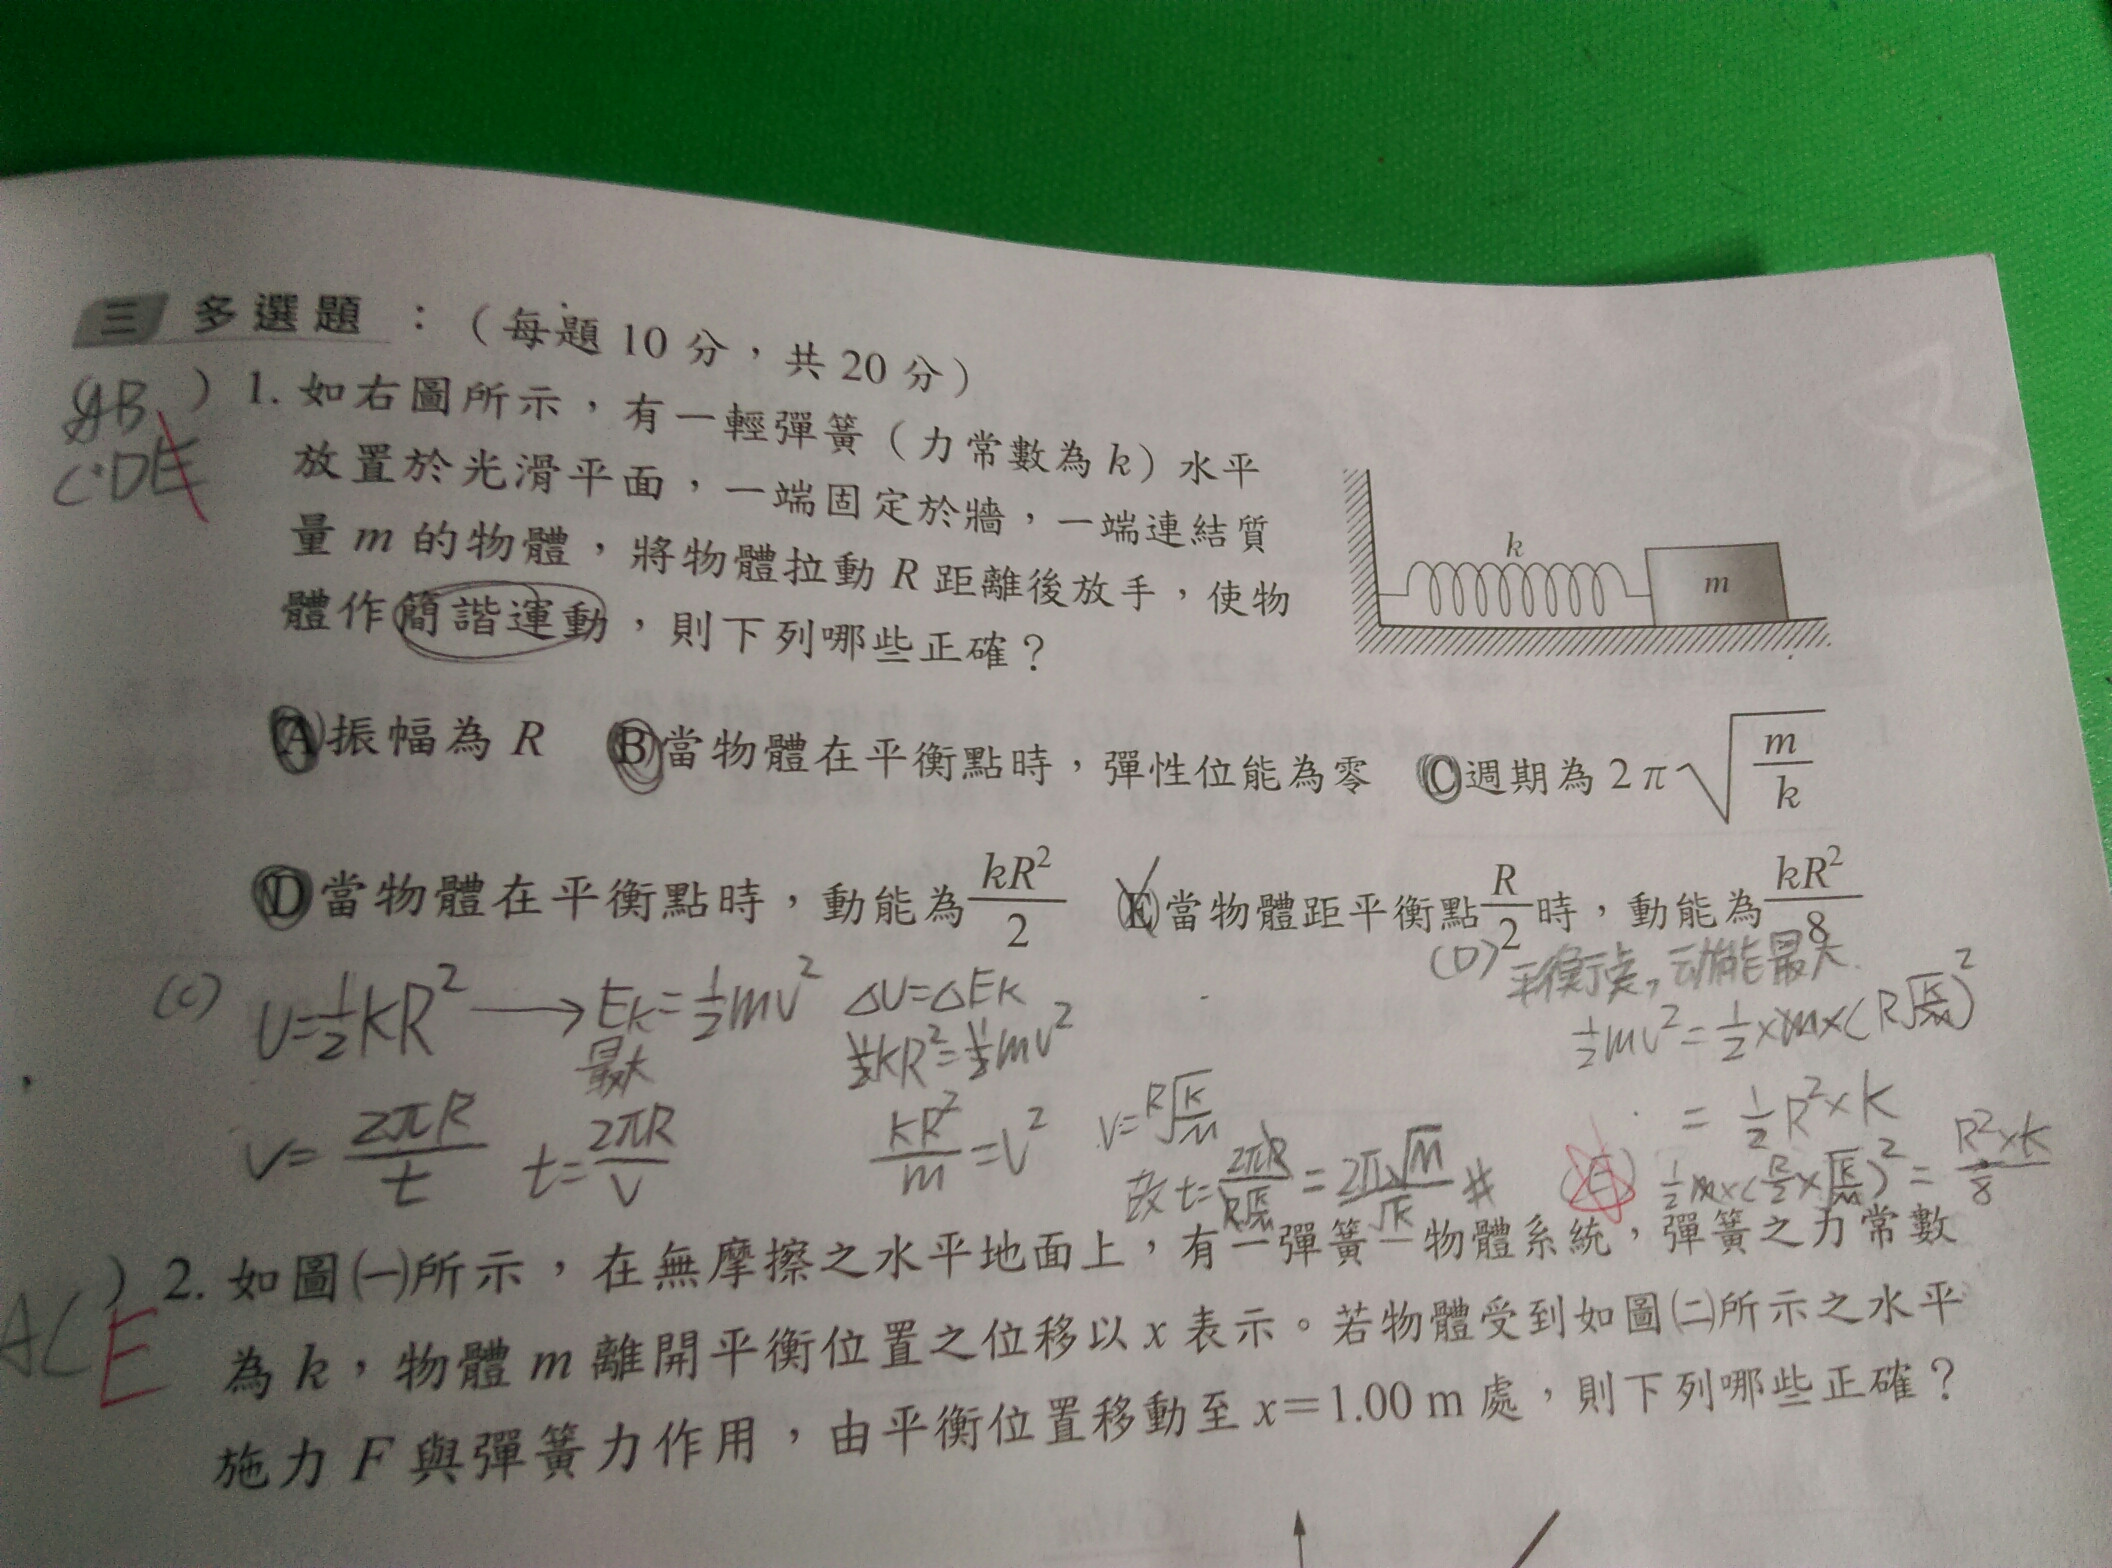 三 多選題：（每題 10 分，共 20 分）
AB
CDE
）1. 如右圖所示，有一輕彈簧（力常數為 k）水平
放置於光滑平面，一端固定於牆，一端連結質
量 m 的物體，將物體拉動 R 距離後放手，使物
體作簡諧運動，則下列哪些正確？
k
m
(A)振幅為 R (B)當物體在平衡點時，彈性位能為零 (C)週期為 2π√(m/k)
(D)當物體在平衡點時，動能為 kR²/2 (E)當物體距平衡點 R/2 時，動能為 kR²/8
(C) U=½KR² → EK=½mv² ΔU=ΔEK
最大
½KR²=½mv²
V=2πR/t t=2πR/V
KR²/m=V²
V=R√(K/m)
故 t=2πR/(R√(K/m))=2π√m/√K #
(D) 平衡点，动能最大
½mv²=½×m×(R√(K/m))²
=½R²×K
(E) ½m×(R/2×√(K/m))²=R²×K/8
）2. 如圖㈠所示，在無摩擦之水平地面上，有一彈簧－物體系統，彈簧之力常數
ACE
為 k，物體 m 離開平衡位置之位移以 x 表示。若物體受到如圖㈡所示之水平
施力 F 與彈簧力作用，由平衡位置移動至 x＝1.00 m 處，則下列哪些正確？